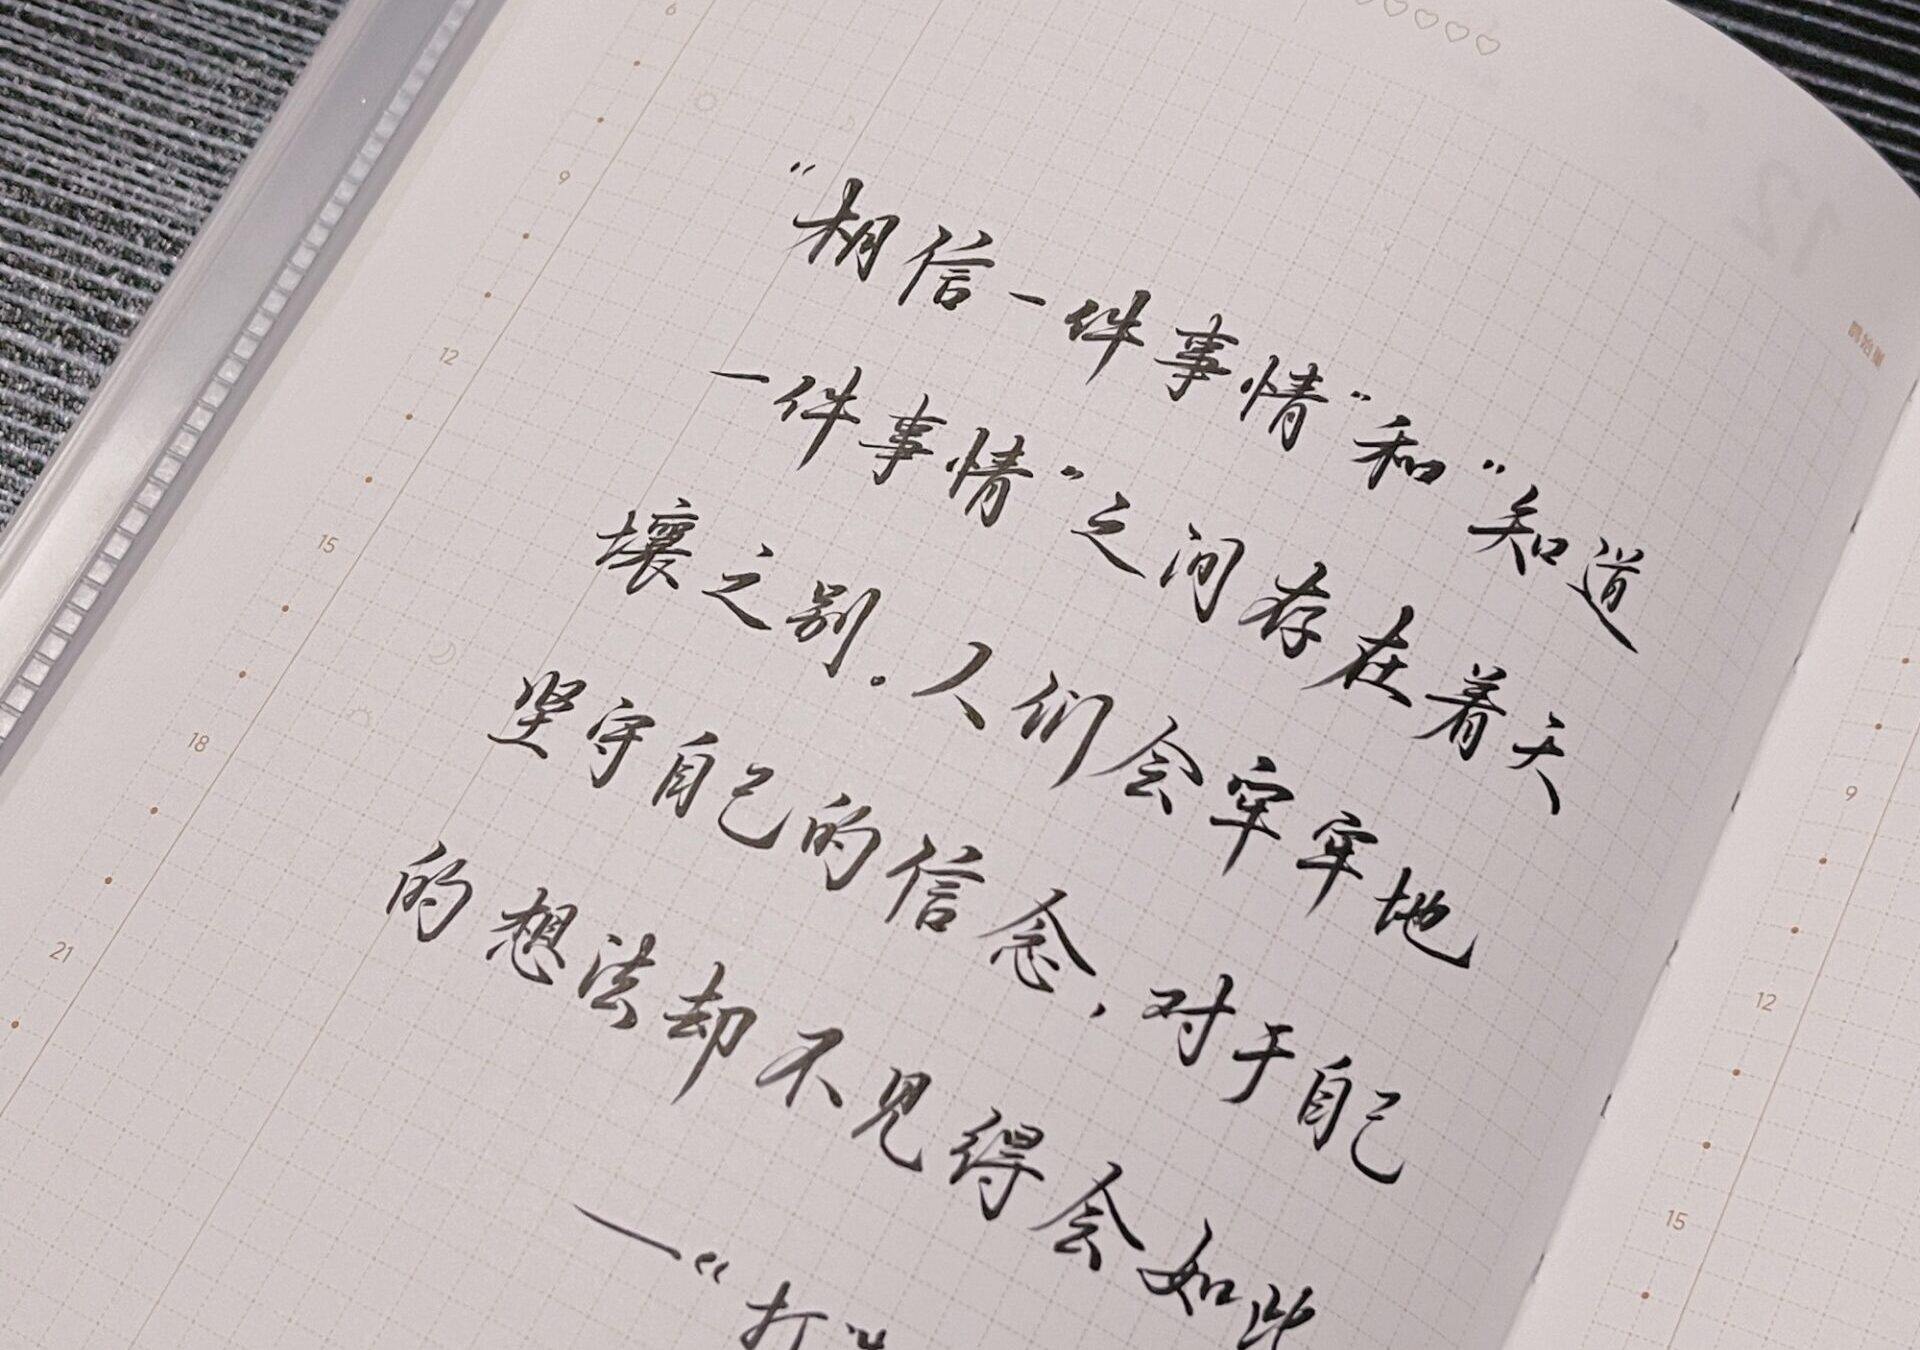 6
9
12
15
18
21
“相信一件事情”和“知道
一件事情”之间存在着天
壤之别。人们会牢牢地
坚守自己的信念，对于自己
的想法却不见得会如此
——“打
12
9
12
15